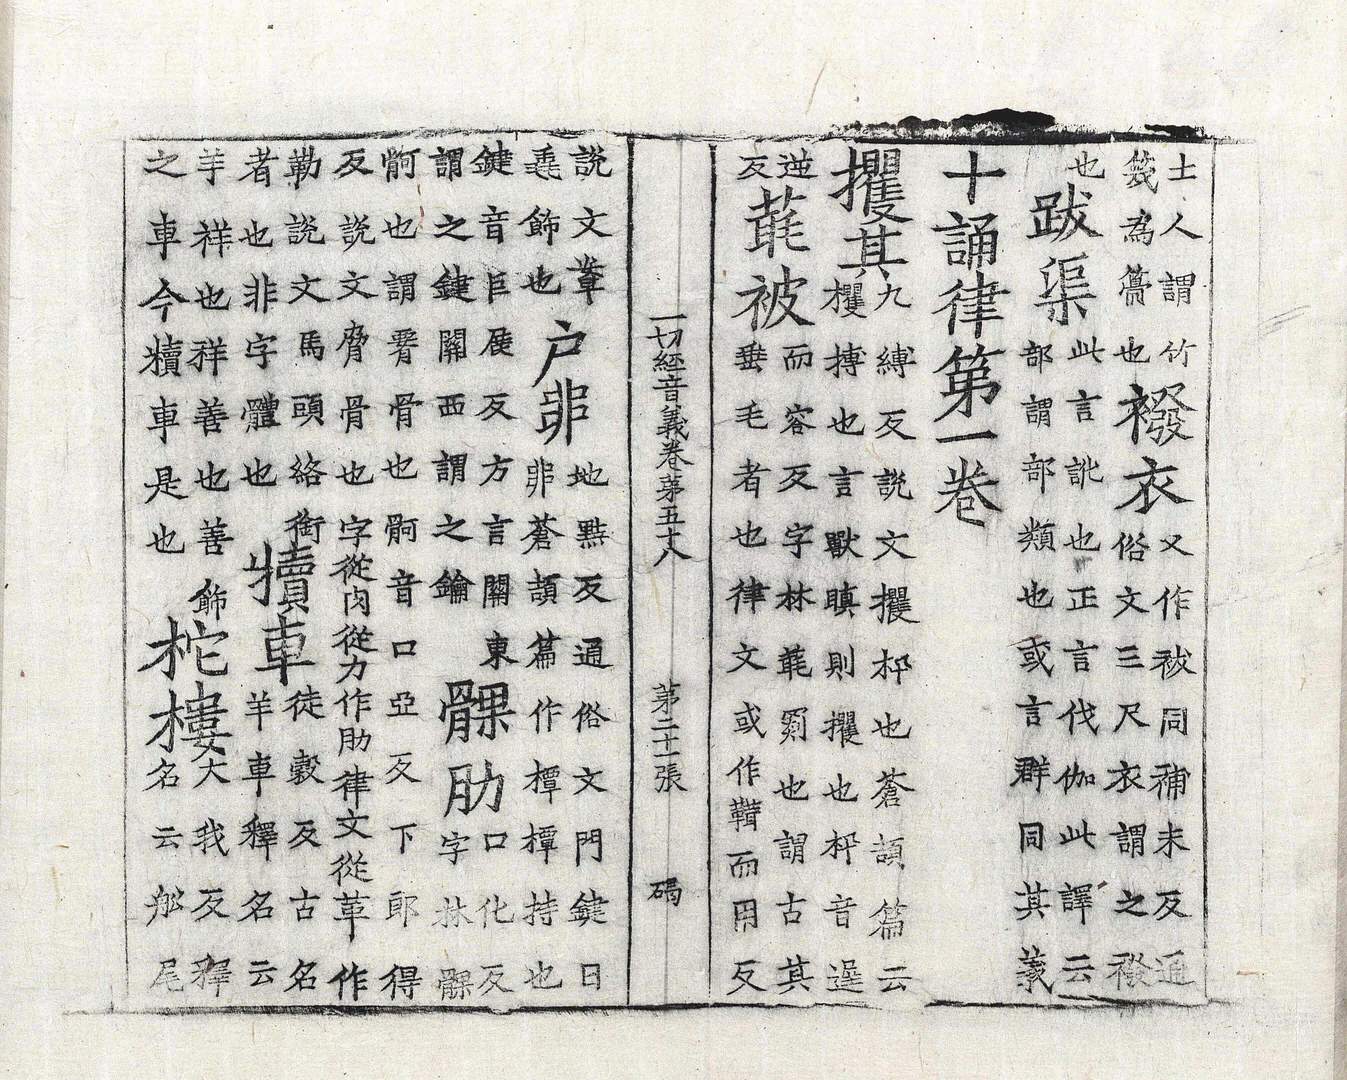 士人謂竹
篾為𥴧也
襏衣
又作袚同補末反通
俗文三尺衣謂之襏
也
跋渠
此言訛也正言伐伽此譯云
部謂部類也或言群同其義
十誦律第一卷
攫其
九縛反說文攫㧌也蒼頡篇云
攫搏也言獸瞋則攫也㧌音逞
逆
反
毦被
而容反字林毦罽也謂古其
垂毛者也律文或作䩸而用反
一切經音義卷第五十八
第二十一張
碣
說文葦
垂飾也
戶𣔺
地點反通俗文門鍵曰
𣔺蒼頡篇作橝橝持也
鍵音巨展反方言關東
謂之鍵關西謂之鑰
髁肋
口化反
字林髁
䯊也謂䯋骨也䯊音口亞反下郎得
反說文脅骨也字從肉從力作肋律文從革作
勒說文馬頭絡銜
者也非字體也
犢車
徒穀反古名
羊車釋名云
羊祥也祥善也善飾
之車今犢車是也
柁樓
大我反釋
名云船尾